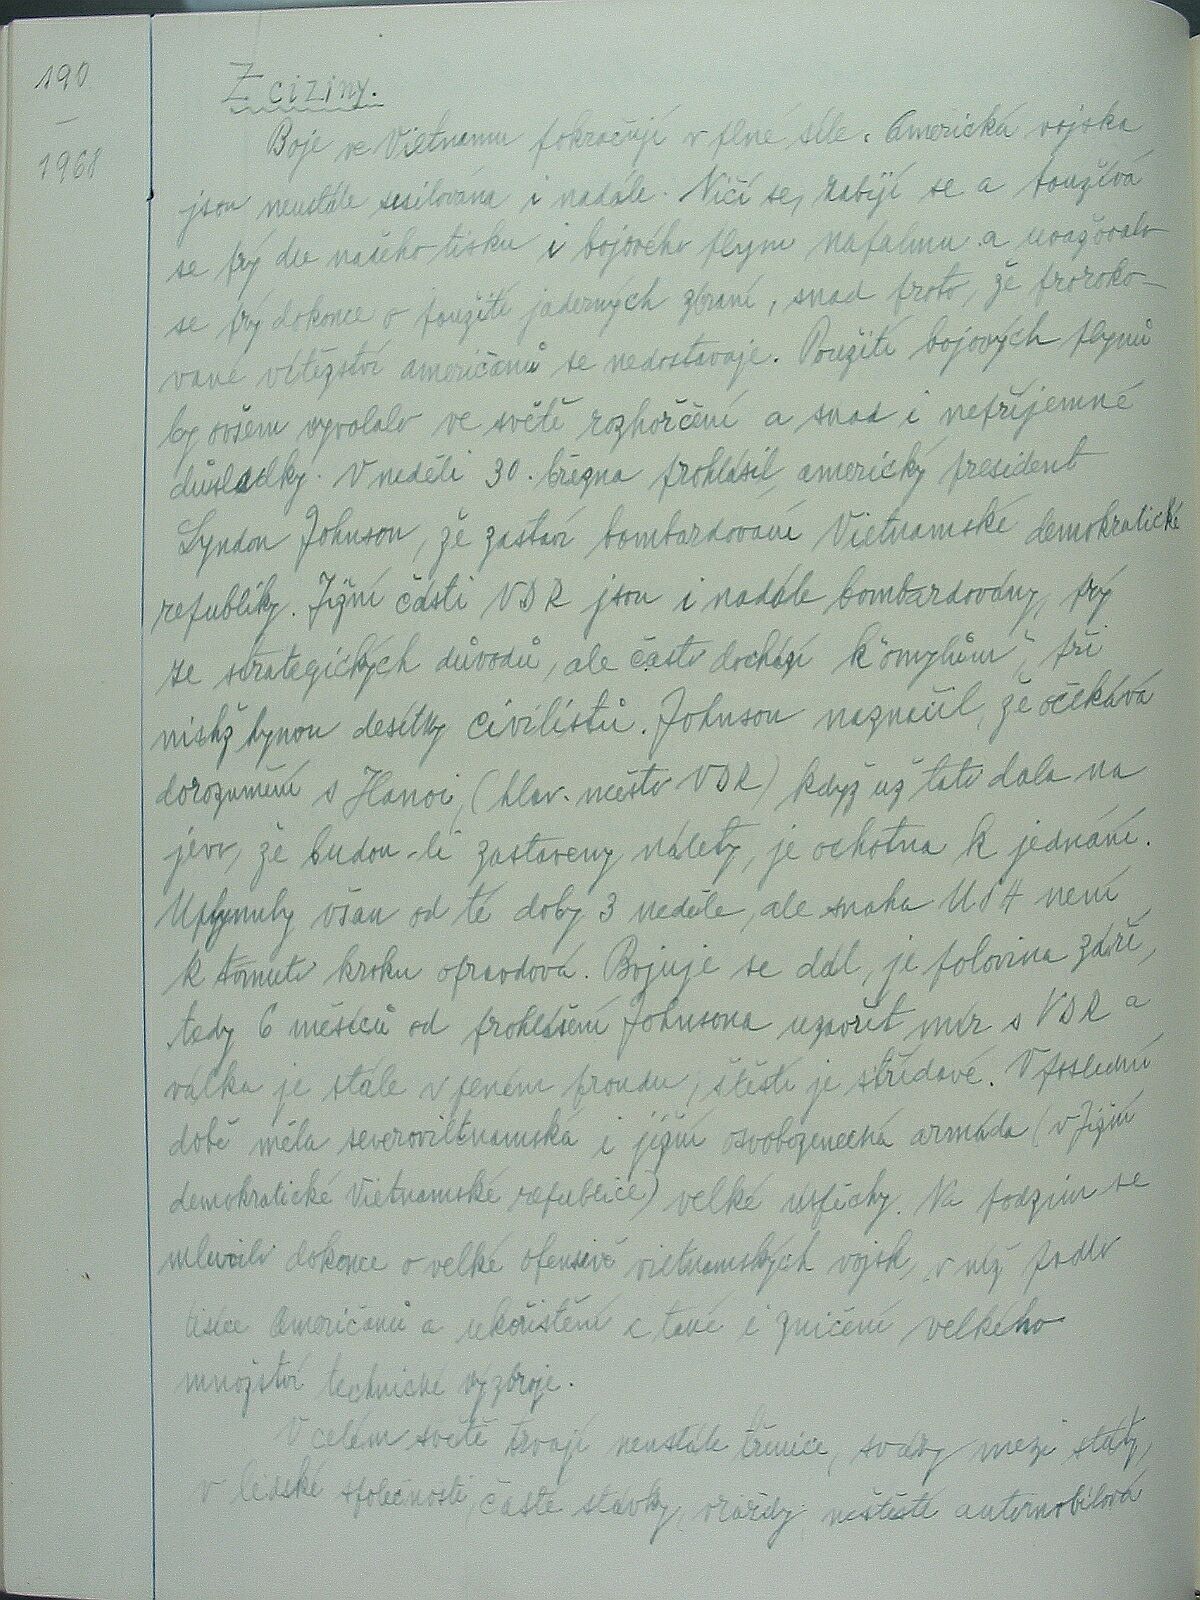 190
—
1968
Z ciziny.
Boje ve Vietnamu pokračují v plné síle. Americká vojska
jsou neustále sesilována i nadále. Ničí se, zabíjí se a používá
se prý dle našeho tisku i bojového plynu napalmu a uvažovalo
se prý dokonce o použití jaderných zbraní, snad proto, že proroko-
vané vítězství američanů se nedostavuje. Použití bojových plynů
by ovšem vyvolalo ve světě rozhořčení a snad i nepříjemné
důsledky. V neděli 30. března prohlásil americký president
Lyndon Johnson, že zastaví bombardování Vietnamské demokratické
republiky. Jižní části VDR jsou i nadále bombardovány, prý
ze strategických důvodů, ale často dochází k "omylům", při
nichž hynou desítky civilistů. Johnson naznačil, že očekává
dorozumění s Hanoi, (hlav. město VDR) když už tato dala na
jevo, že budou-li zastaveny nálety, je ochotna k jednání.
Uplynuly však od té doby 3 neděle, ale snaha USA není
k tomuto kroku opravdová. Bojuje se dál, je polovina září,
tedy 6 měsíců od prohlášení Johnsona uzavřít mír s VDR a
válka je stále v plném proudu, štěstí je střídavé. V poslední
době měla severovietnamská i jižní osvobozenecká armáda (v Jižní
demokratické Vietnamské republice) velké úspěchy. Na podzim se
mluvilo dokonce o velké ofensivě vietnamských vojsk, v níž padlo
tisíce Američanů a ukořistění a také i zničení velkého
množství technické výzbroje.
V celém světě trvají neustále třenice, sváry mezi státy,
v lidské společnosti, časté stávky, vraždy, neštěstí automobilová